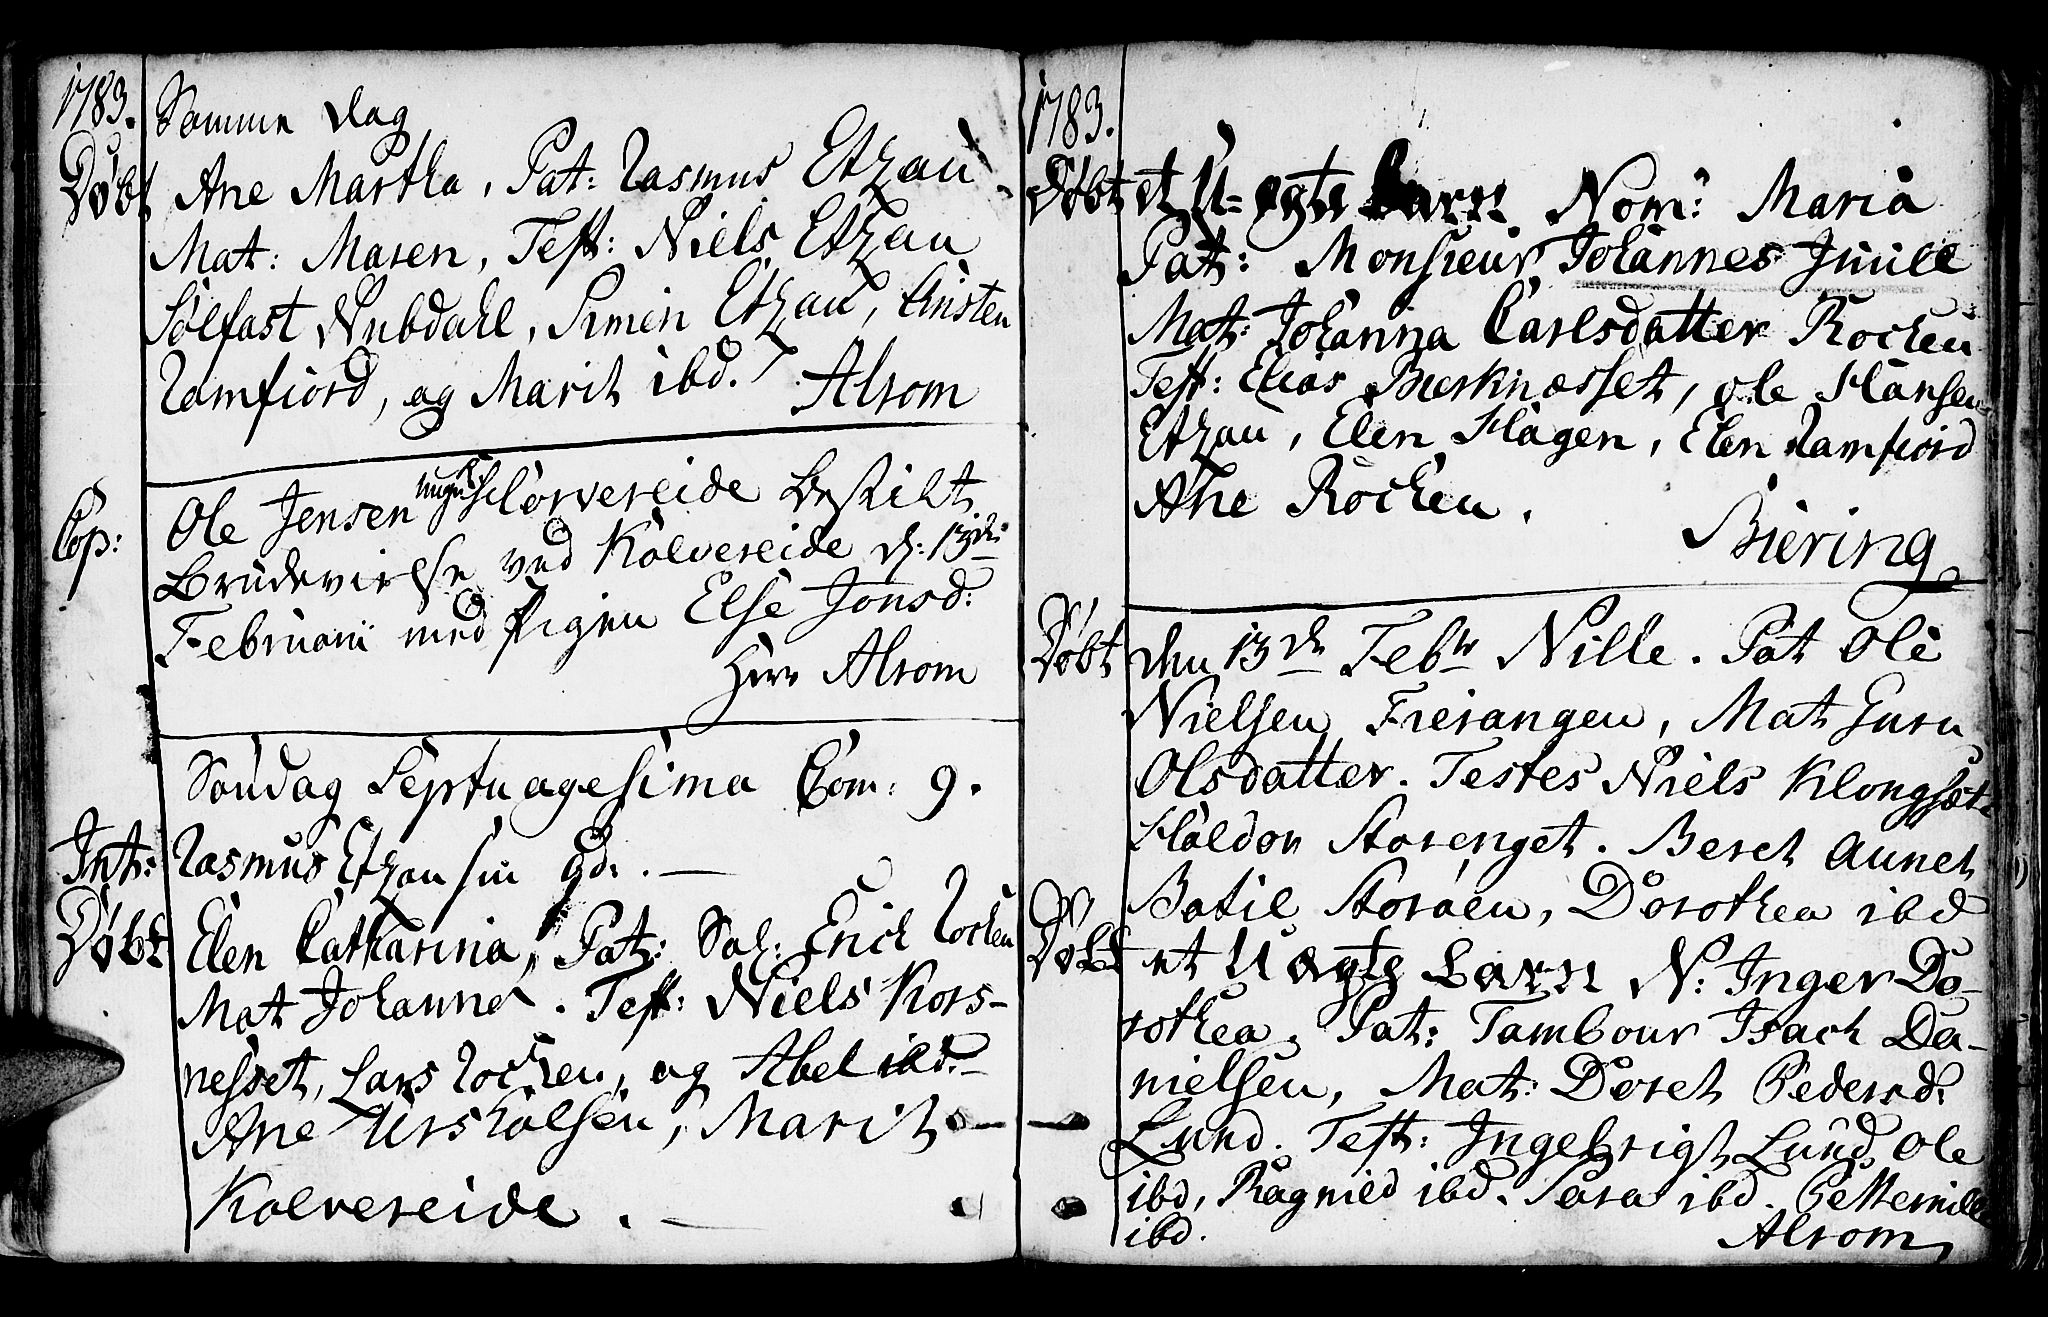 1783.
Samme Dag
Døbt Ane Martha, Pat: Rasmus Etzau.
Mat: Maren, Test: Niels Etzau
Solfast Nubdahl, Simen Etzau, Austen
Ramfiord, og Marit ibd. Alsom
Cop: Ole Jensen unge Horvereide bestilt
Brudevielse ved Kolvereide d: 13de
Februarii med Pigen Else Jonsd:
Herr Alsom
Søndag Septuagesima Com: 9.
Int: Rasmus Etzau sin Qd: . —
Døbt Elen Catharina, Pat: Sal: Erich Rocken
Mat Johanna. Test: Niels Kors-
nesset, Lars Rocken, og Abel ibd. —
Ane Ursholsen, Marit —
Kolvereide . —
1783.
Døbt et U-egte Barn Nom: Maria
Pat: Monsieur Johannes Juuel
Mat: Johanna Carlsdatter Rocken
Test: Elias Bierknæsset, Ole Hansen
Etzau, Elen Hagen, Elen Ramfiord
Ane Rocken.
Biering
Døbt den 13de Febr Nille. Pat Ole
Nielsen Fierangen, Mat Guru
Olsdatter. Testes Niels Klongsæt
Haldor Storenget. Beret Aunet
Botil Storøen, Dorothea ibd
Døbt et Uægte Barn N: Inger Do-
rothea, Pat: Tambour Isach Da-
nielsen, Mat: Doret Pedersd:
Lund. Test: Ingebrigt Lund, Ole
ibd, Ragnild ibd. Sara ibd. Petternille
ibd. Alsom